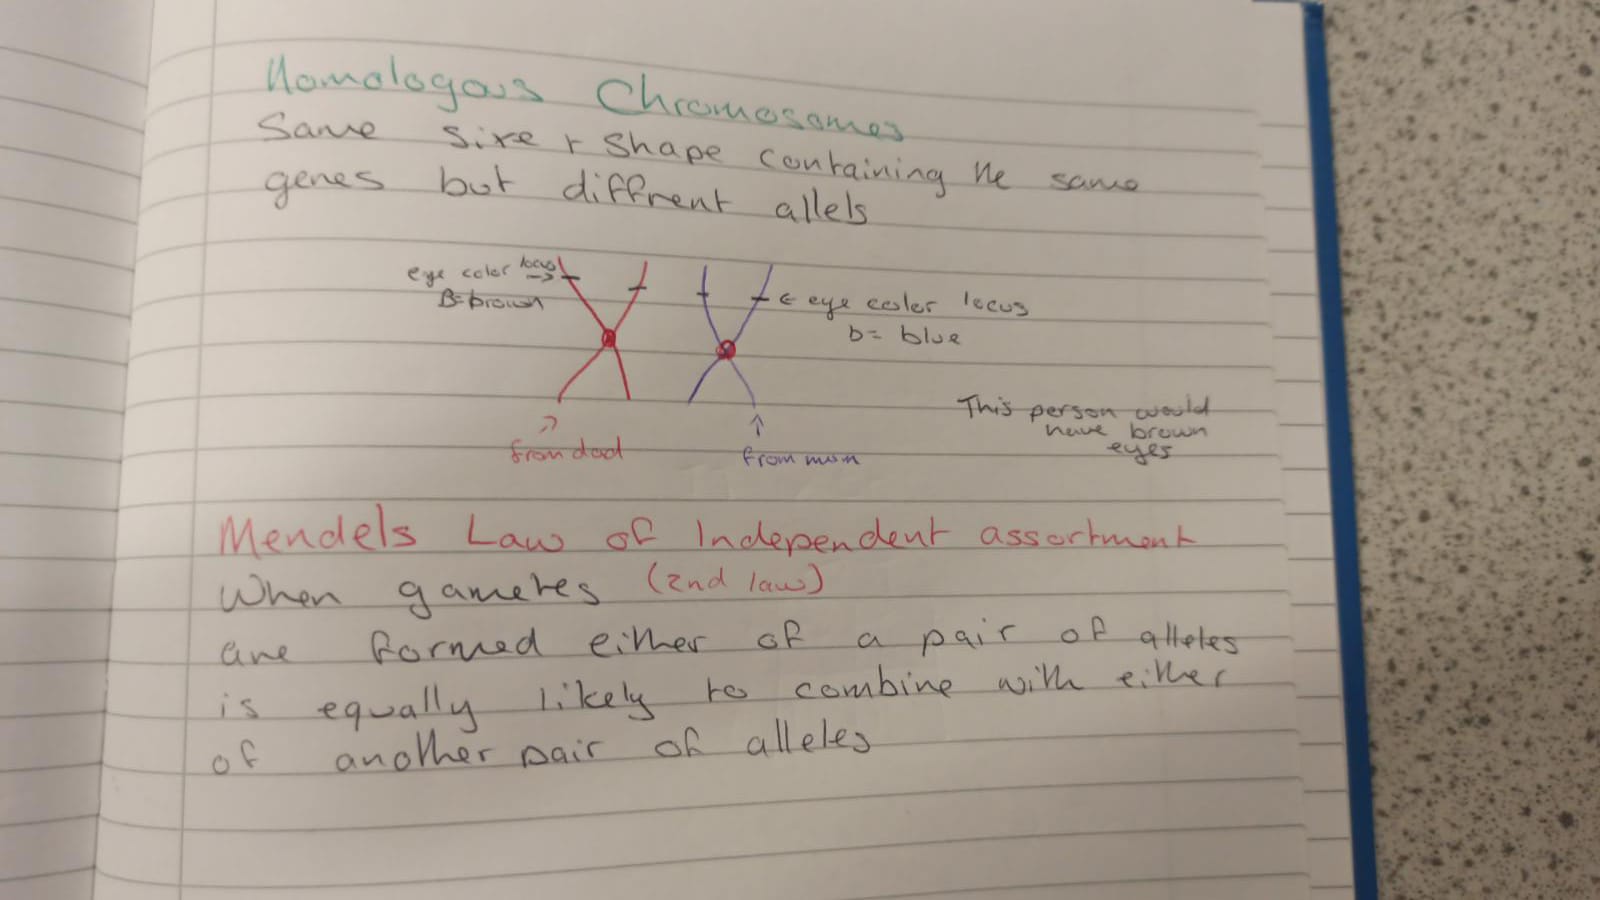 Homologous Chromosomes
Same size + shape containing the same
genes but diffrent allels
eye color locus →
B=brown
← eye color locus
b= blue
This person would
have brown
eyes
from dad
from mum
Mendels Law of Independent assortment
When gametes (2nd law)
are formed either of a pair of alleles
is equally likely to combine with either
of another pair of alleles